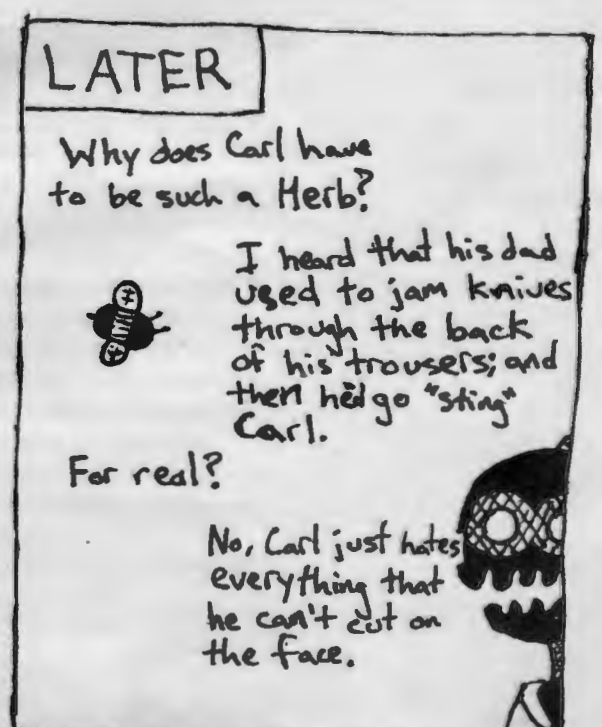 LATER
Why does Carl have
to be such a Herb?
I heard that his dad
used to jam knives
through the back
of his trousers; and
then he'd go "sting"
Carl.
For real?
No, Carl just hates
everything that
he can't cut on
the face.